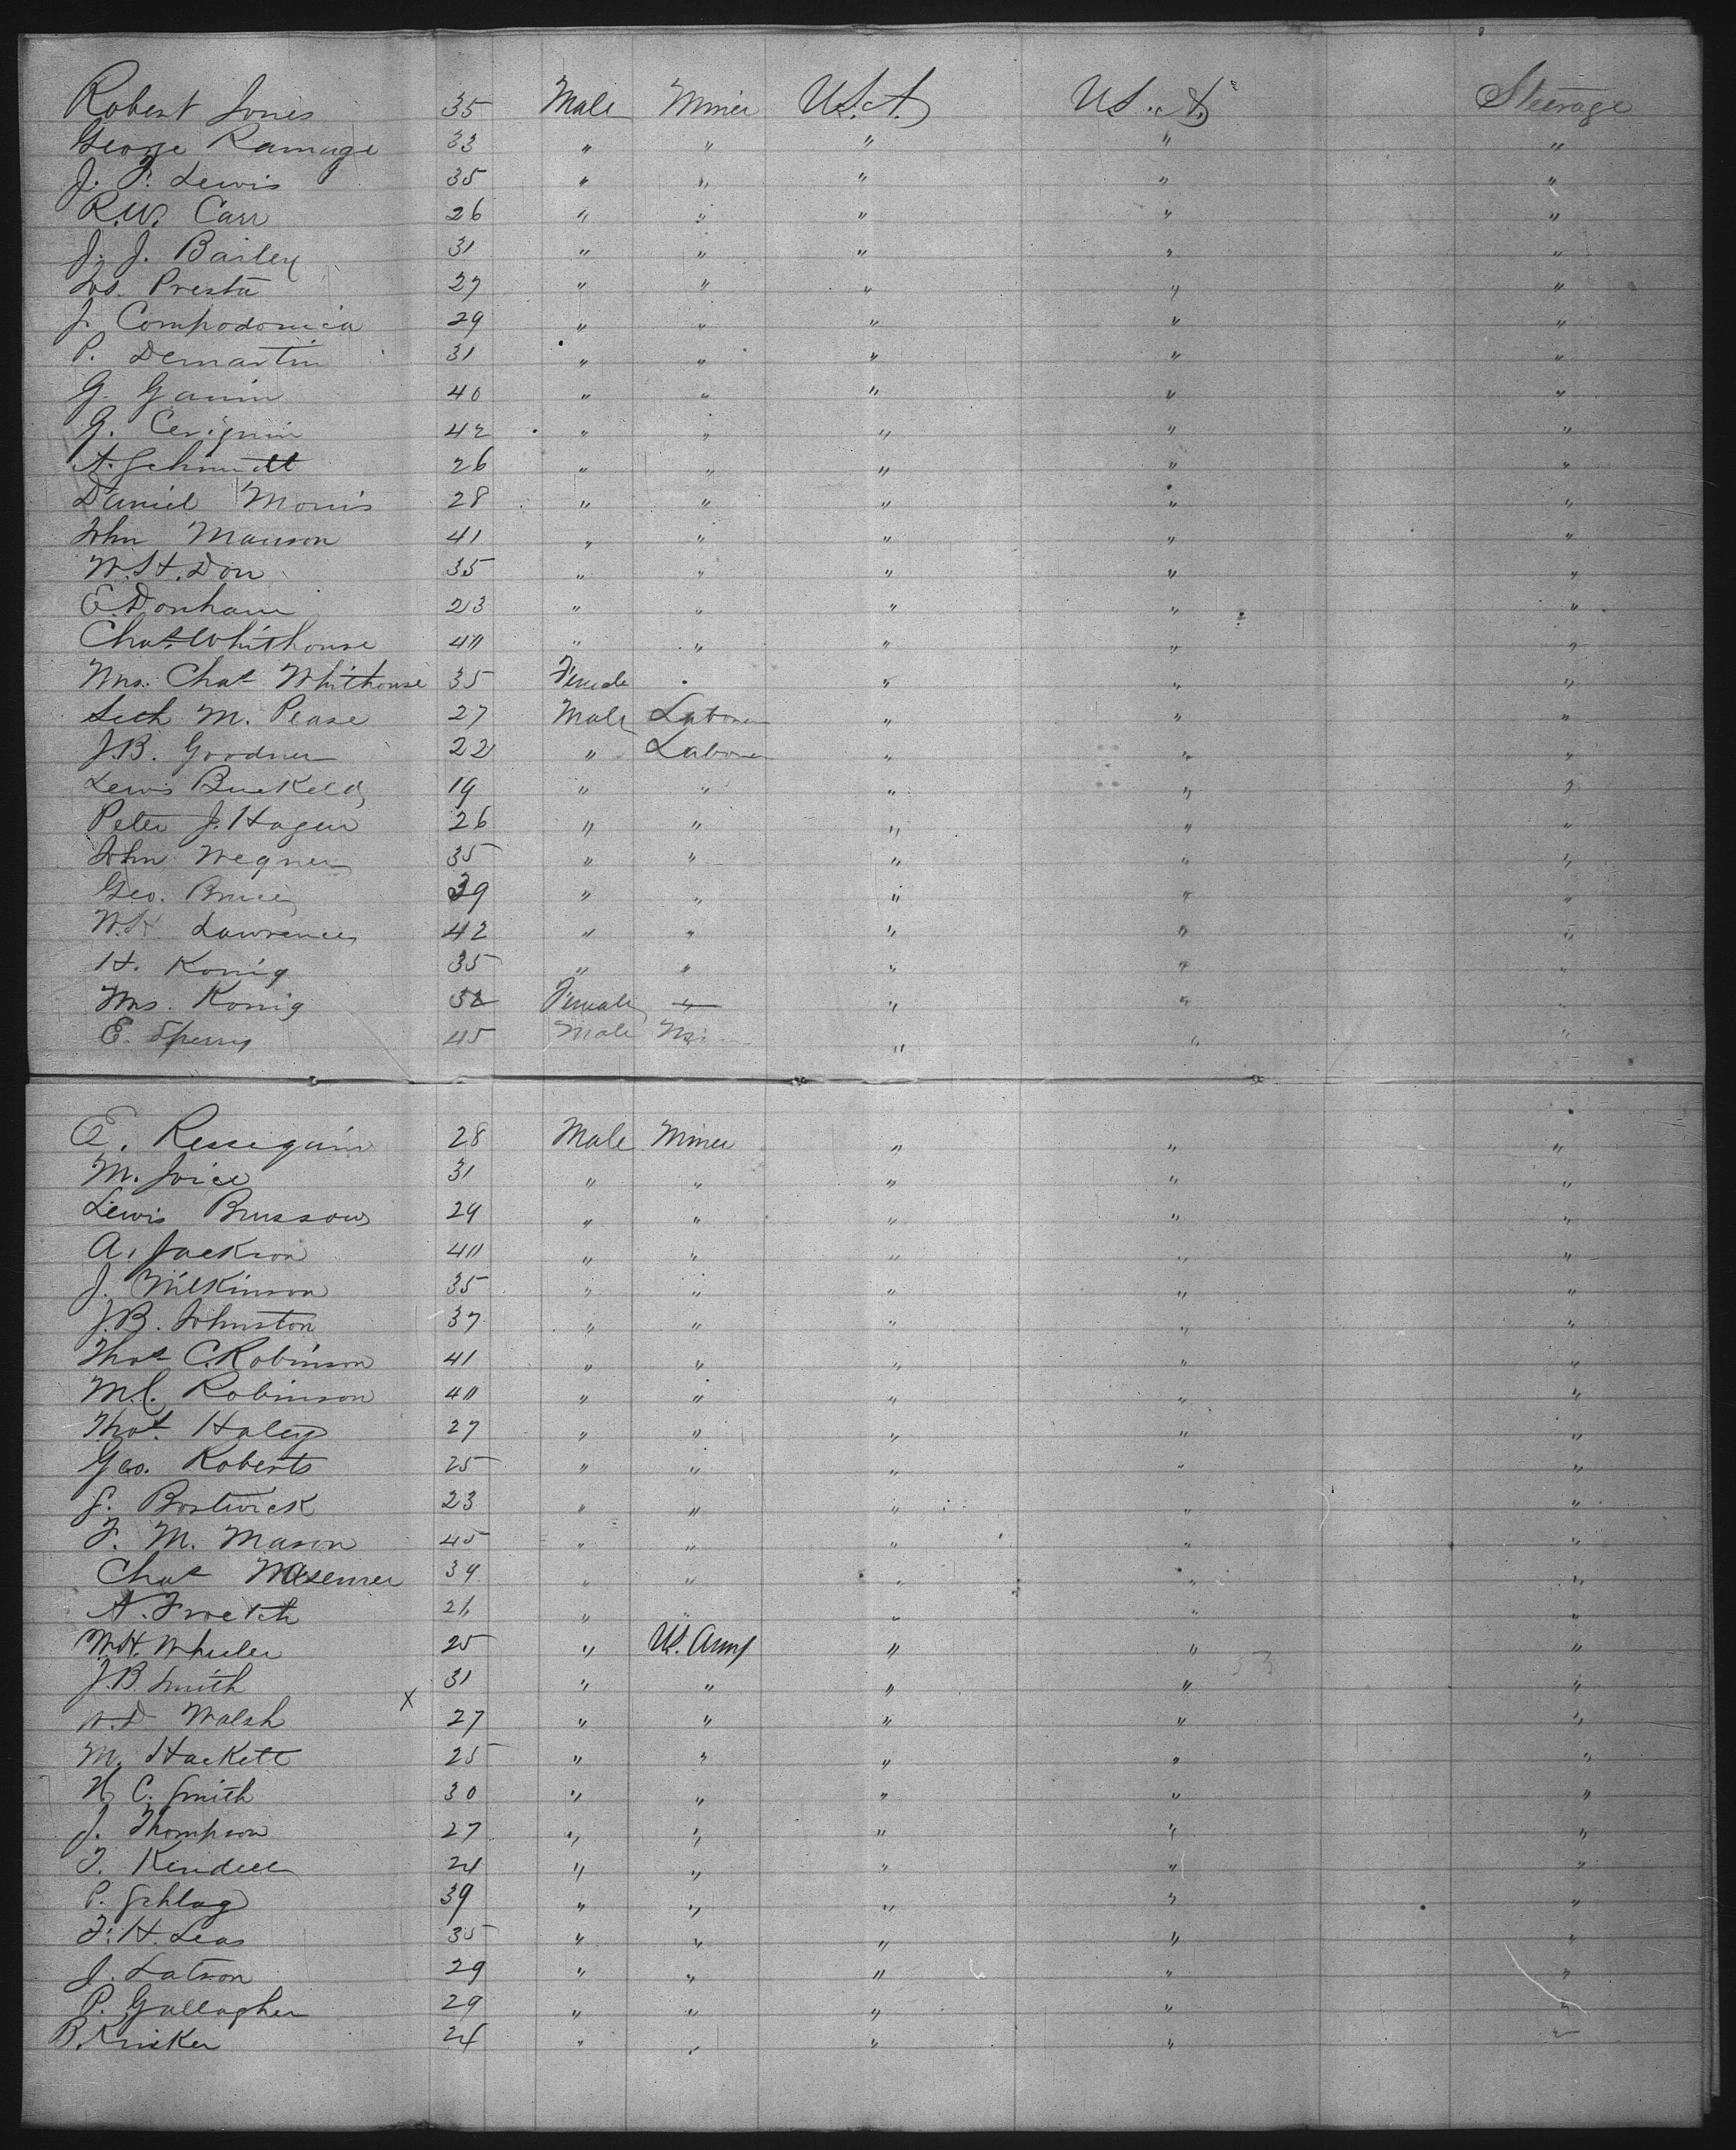 Robert Jones 35 Male Miner U.S.A. U.S.A. Steerage
George Ramage 33 " " " " "
J. F. Lewis 35 " " " " "
R.W. Carr 26 " " " " "
J. J. Bailey 31 " " " " "
Presta 27 " " " " "
J. Compodonica 29 " " " " "
P. Demartin 31 " " " " "
G. 40 " " " " "
G. 42 " " " " "
A. Schmidtt 26 " " " " "
Daniel Morris 28 " " " " "
John Manson 41 " " " " "
W.H. Don 35 " " " " "
E. Donham 23 " " " " "
Chas Whithouse 40 " " " " "
Mrs. Chas Whithouse 35 Female " " "
Seth M. Pease 27 Male Laborer " " "
J.B. Goodner 22 " Laborer " " "
Lewis 19 " " " " "
Peter J. Hagen 26 " " " " "
John Wegner 35 " " " " "
Geo. Bruce 39 " " " " "
W.H. Lawrence 42 " " " " "
H. Konig 35 " " " " "
Mrs. Konig 32 Female " " " "
E. Sperry 45 Male " " "
E. 28 Male Miner " " "
M. Joice 31 " " " " "
Lewis Brussow 29 " " " " "
A. Jackson 40 " " " " "
J. Wilkinson 35 " " " " "
J.B. Johnston 37 " " " " "
Thos C. Robinson 41 " " " " "
M.C. Robinson 40 " " " " "
Thos. Haley 27 " " " " "
Geo. Roberts 25 " " " " "
S. Bostwick 23 " " " " "
F. M. Mason 45 " " " " "
Chas 39 " " " " "
A. 26 " " " " "
W.H. Wheeler 25 " U.S. Army " " "
J.B. Smith 31 " " " " "
D Walsh x 27 " " " " "
M. Hackett 25 " " " " "
H. C. Smith 30 " " " " "
J. Thompson 27 " " " " "
T. Kendell 24 " " " " "
P. Schlag 39 " " " " "
F. H. Leas 35 " " " " "
J. Latson 29 " " " " "
P. Gallagher 29 " " " " "
B. Kricker 24 " " " " "